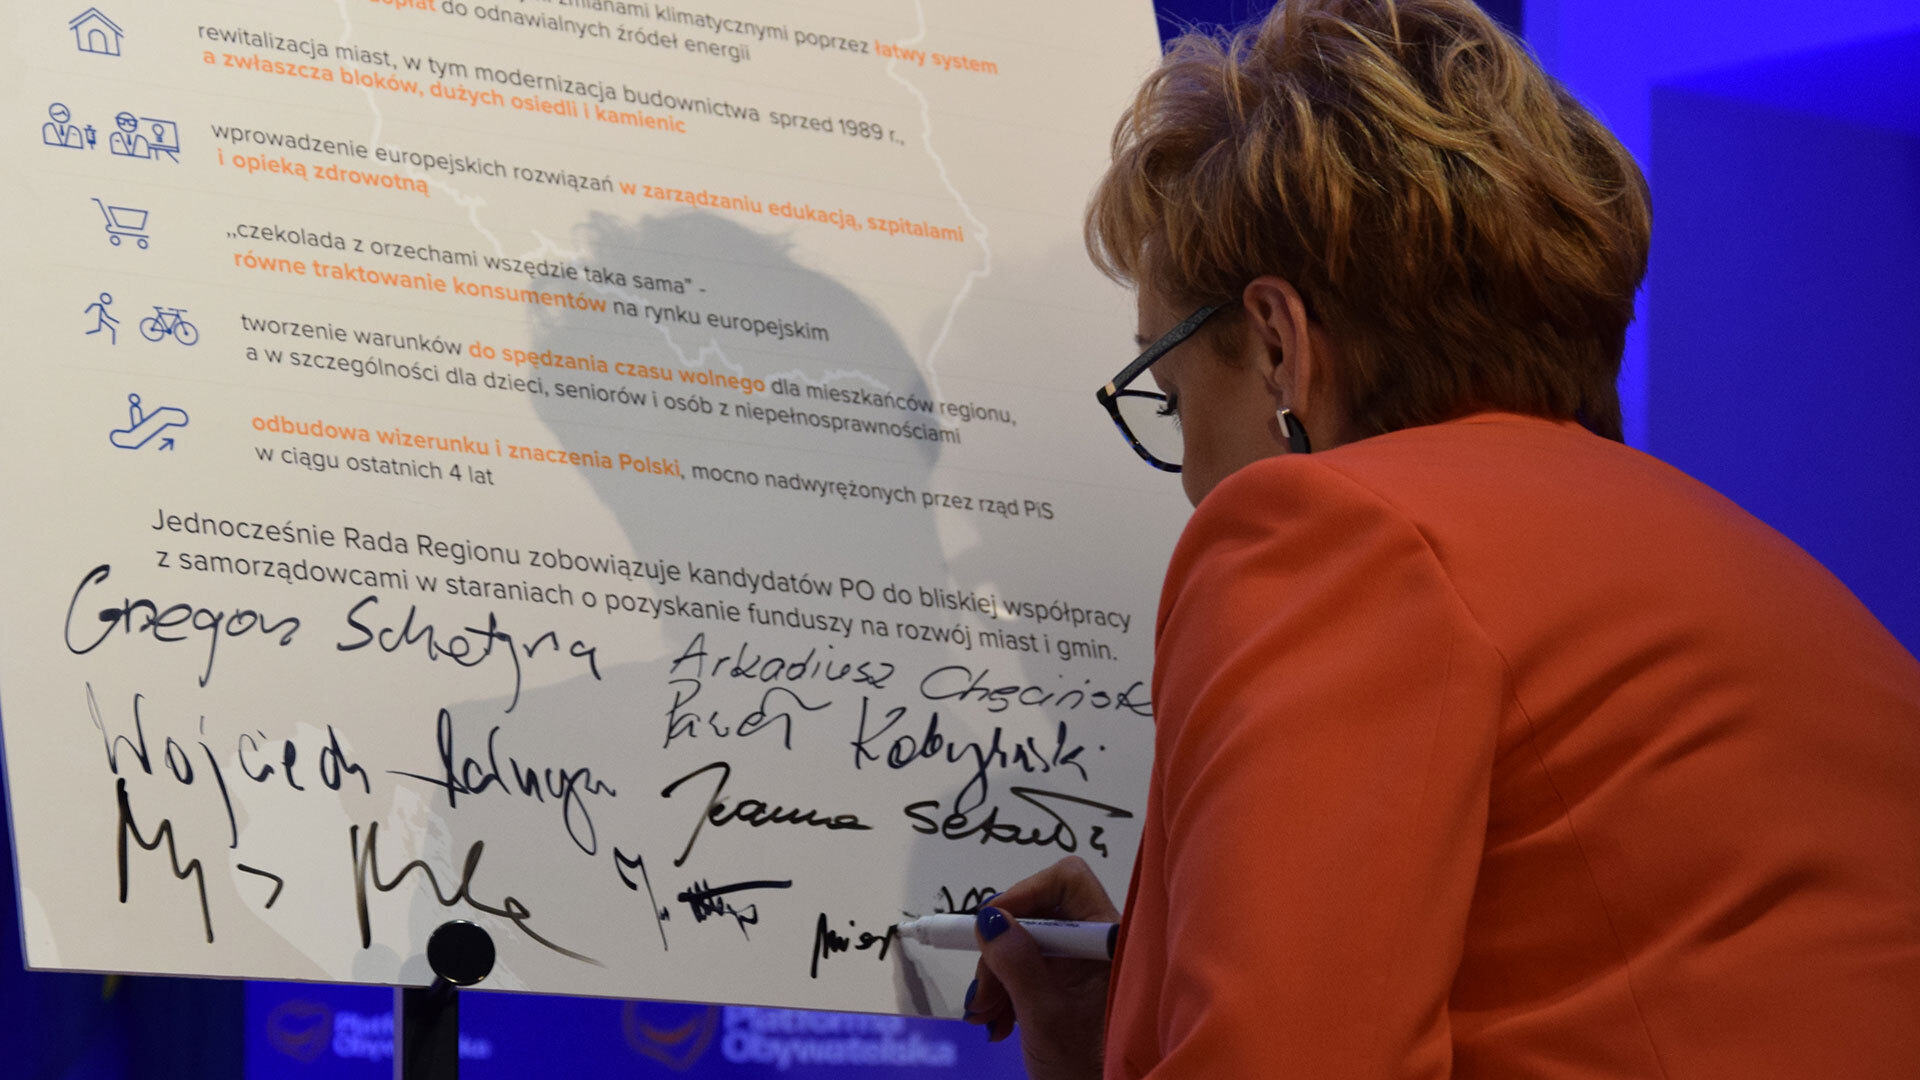 zmianami klimatycznymi poprzez łatwy system
dopłat do odnawialnych źródeł energii
rewitalizacja miast, w tym modernizacja budownictwa sprzed 1989 r.,
a zwłaszcza bloków, dużych osiedli i kamienic
wprowadzenie europejskich rozwiązań w zarządzaniu edukacją, szpitalami
i opieką zdrowotną
„czekolada z orzechami wszędzie taka sama" -
równe traktowanie konsumentów na rynku europejskim
tworzenie warunków do spędzania czasu wolnego dla mieszkańców regionu,
a w szczególności dla dzieci, seniorów i osób z niepełnosprawnościami
odbudowa wizerunku i znaczenia Polski, mocno nadwyrężonych przez rząd PiS
w ciągu ostatnich 4 lat
Jednocześnie Rada Regionu zobowiązuje kandydatów PO do bliskiej współpracy
z samorządowcami w staraniach o pozyskanie funduszy na rozwój miast i gmin.
Grzegorz Schetyna
Arkadiusz Chęciński
Paweł Kobyliński
Wojciech Saługa
Joanna Sekuła
Platforma
Obywatelska